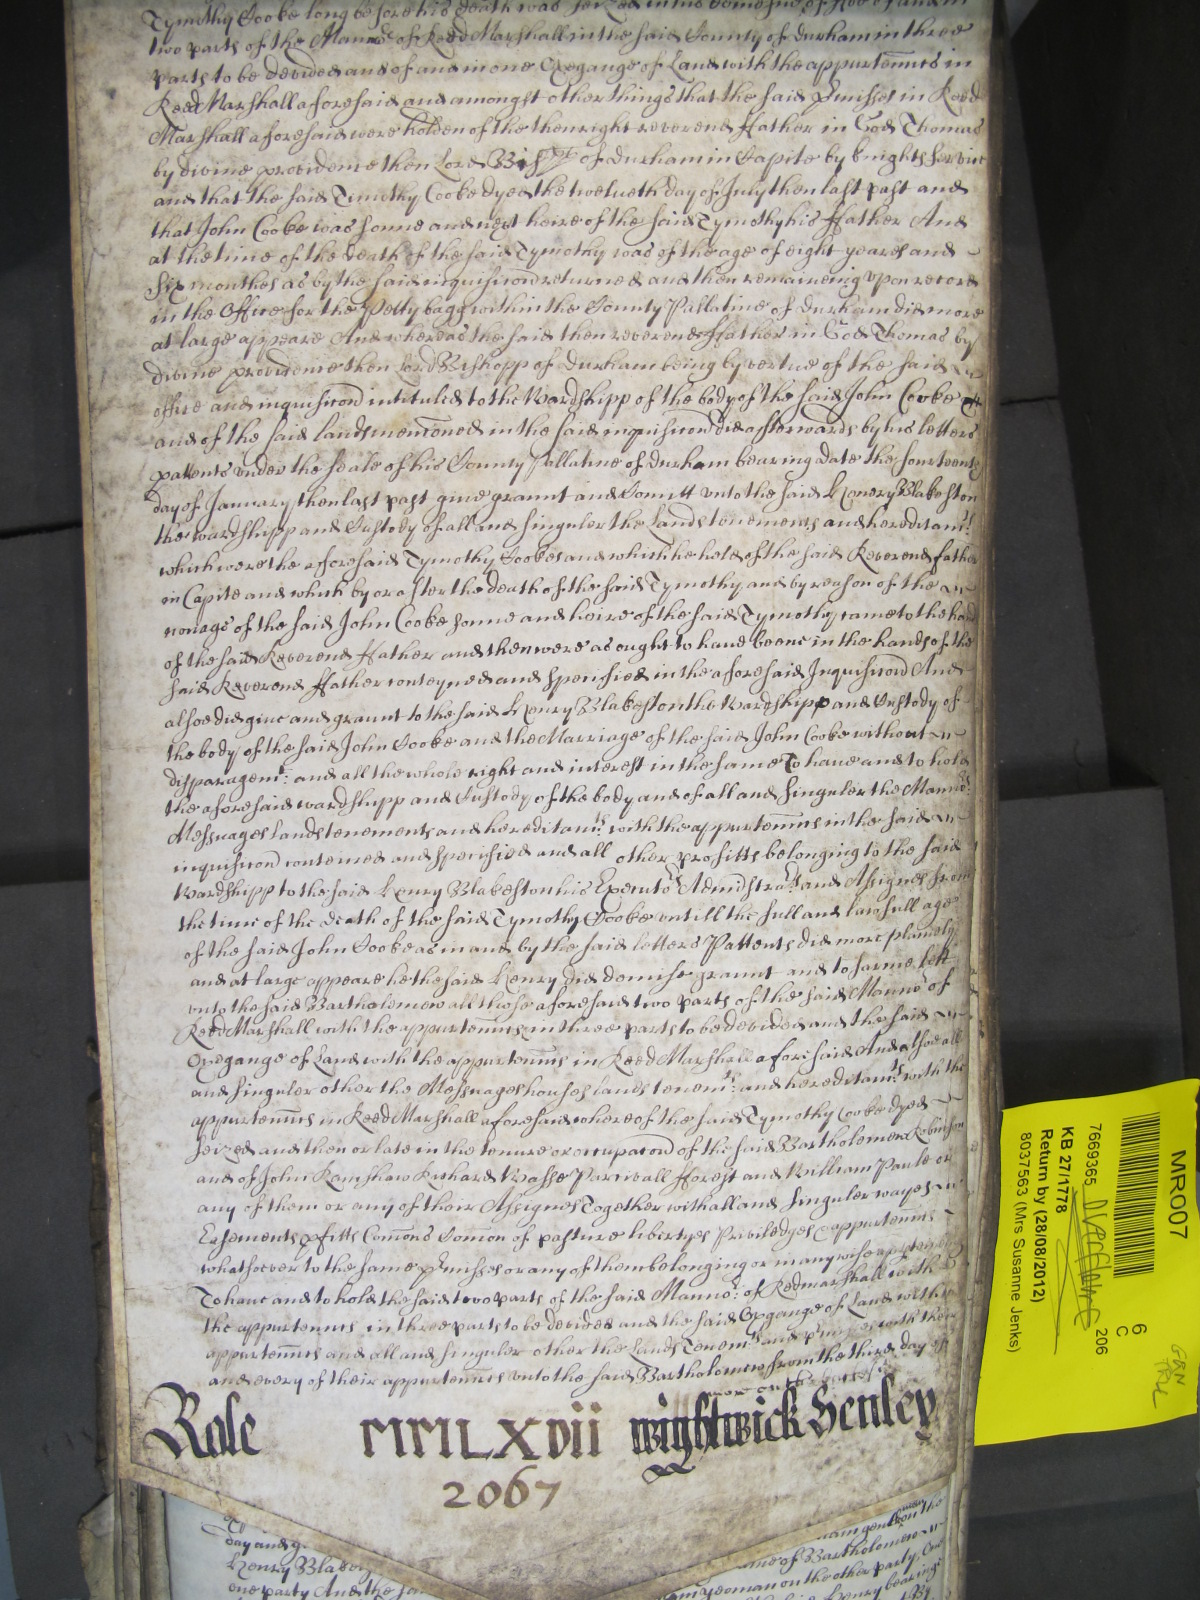 Tymothy Cooke long before his death was seized in his demesne as of Fee of and in
two parts of the Mannor of Redd Marshall in the said County of Durham in three
parts to be devided and of and in one Oxegange of Land with the appurtenncs in
Redd Marshall aforesaid and amongst other things that the said Pmisses in Redd
Marshall aforesaid were holden of the then right reverend Father in God Thomas
by divine providence then Lord Bishopp of Durham in Capite by knights service
and that the said Timothy Cooke dyed the twelueth day of July then last past and
that John Cooke was sonne and next heire of the said Tymothy his Father And
at the time of the death of the said Tymothy was of the age of eight yeares and
six monthes as by the said inquisicon returned and then remaineing vpon record
in the Office for the Petty bagg within the County Pallatine of Durham did more
at large appeare And whereas the said then reverend Father in God Thomas by
divine providence then Lord Bishopp of Durham being by vertue of the said
office and inquisicon intituled to the Wardshipp of the body of the said John Cooke
and of the said lands mencioned in the said inquisicon did afterwards by his letters
pattents vnder the seale of his County Pallatine of Durham bearing date the fourteenth
day of January then last past giue graunt and Comitt vnto the said Henery Blakeston
the wardshipp and Custody of all and singuler the Lands tenements and hereditamts
which were the aforesaid Tymothy Cookes and which he held of the said Reverend father
in Capite and which by or after the death of the said Tymothy and by reason of the
nonage of the said John Cooke sonne and heire of the said Tymothy came to the hands
of the said Reverend Father and then were as ought to haue beene in the hands of the
said Reverend Father conteyned and specified in the aforesaid Inquisicon And
alsoe did giue and graunt to the said Henry Blakeston the Wardshipp and Custody of
the body of the said John Cooke and the Marriage of the said John Cooke without
disparagemt: and all the whole right and interest in the same To haue and to hold
the aforesaid wardshipp and Custody of the body and of all and singuler the Mannors
Messuages lands tenements and hereditamts with the appurtenncs in the said
inquisicon conteined and specified and all other profitts belonging to the said
Wardshipp to the said Henry Blakeston his Executors Administrators and Assignes from
the time of the death of the said Tymothy Cooke vntill the full and lawfull age
of the said John Cooke as in and by the said letters Pattents did more plainely
and at large appeare he the said Henry did demise graunt and to farme lett
vnto the said Bartholemew all those aforesaid two parts of the said Mannor of
Redd Marshall with the appurtenncs in three parts to be devided and the said
Oxegange of Land with the appurtenncs in Redd Marshall aforesaid And alsoe all
and singuler other the Messuages houses lands tenemts: and hereditamts with the
appurtenncs in Redd Marshall aforesaid whereof the said Tymothy Cooke dyed
seized and then or late in the tenure or occupacon of the said Bartholemew Robinson
and of John Ramshaw Richard Wasse Parcivall Fforest and William Paule or
any of them or any of their Assignes Together with all and singuler wayes
Easements pfitts Comons Comon of pasture libertyes Priviledges & appurtenncs
whatsoever to the same Pmisses or any of them belonging or in any wise apperteining
To haue and to hold the said two parts of the said Mannor: of Redmarshall with
the appurtenncs in three parts to be devided and the said Oxgange of Land with the
appurtenncs and all and singuler other the Lands Tenemts and pmisses with their
and every of their appurtenncs vnto the said Bartholemew from the third day of
Role MMLXVII wightwick Henley
2067
day and
Henry Blakes
one party And the sa
ame of Bartholemew
yeoman on the other party, One
Henry bearing
MR007
6
C
206
7669365
KB 27/1778
Return by (28/08/2012)
8037563 (Mrs Susanne Jenks)